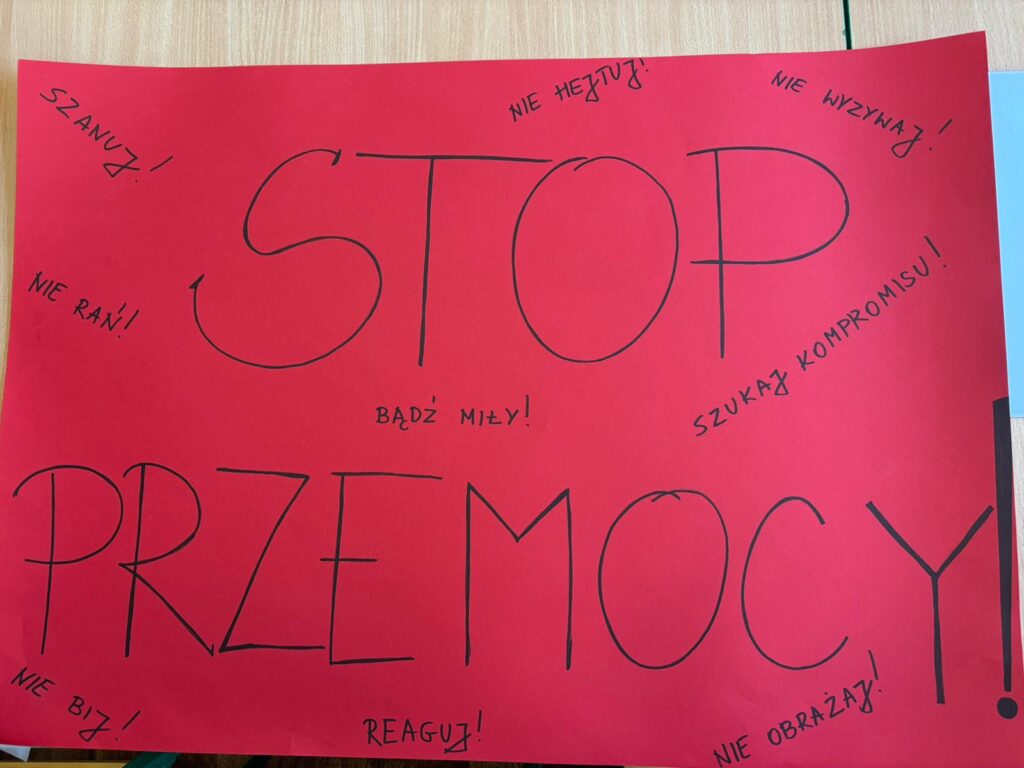 SZANUJ!
NIE HEJTUJ!
NIE WYZYWAJ!
STOP
NIE RAŃ!
SZUKAJ KOMPROMISU!
BĄDŹ MIŁY!
PRZEMOCY!
NIE BIJ!
REAGUJ!
NIE OBRAŻAJ!